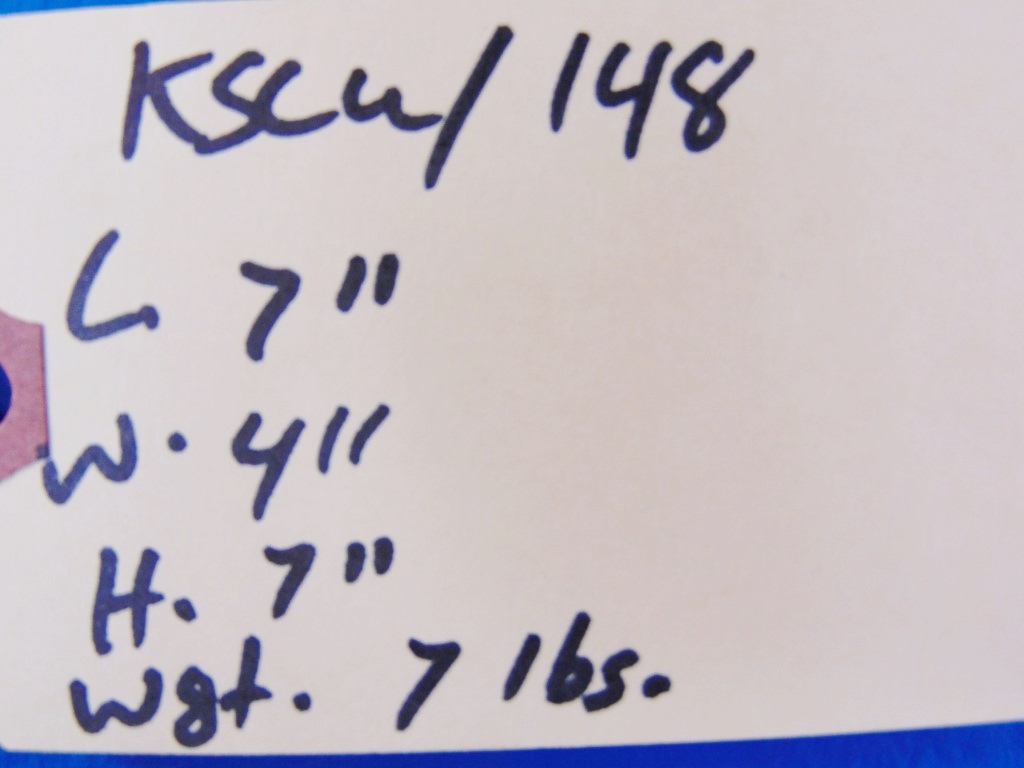 KSCU/148
L. 7"
W. 4"
H. 7"
Wgt. 7 lbs.